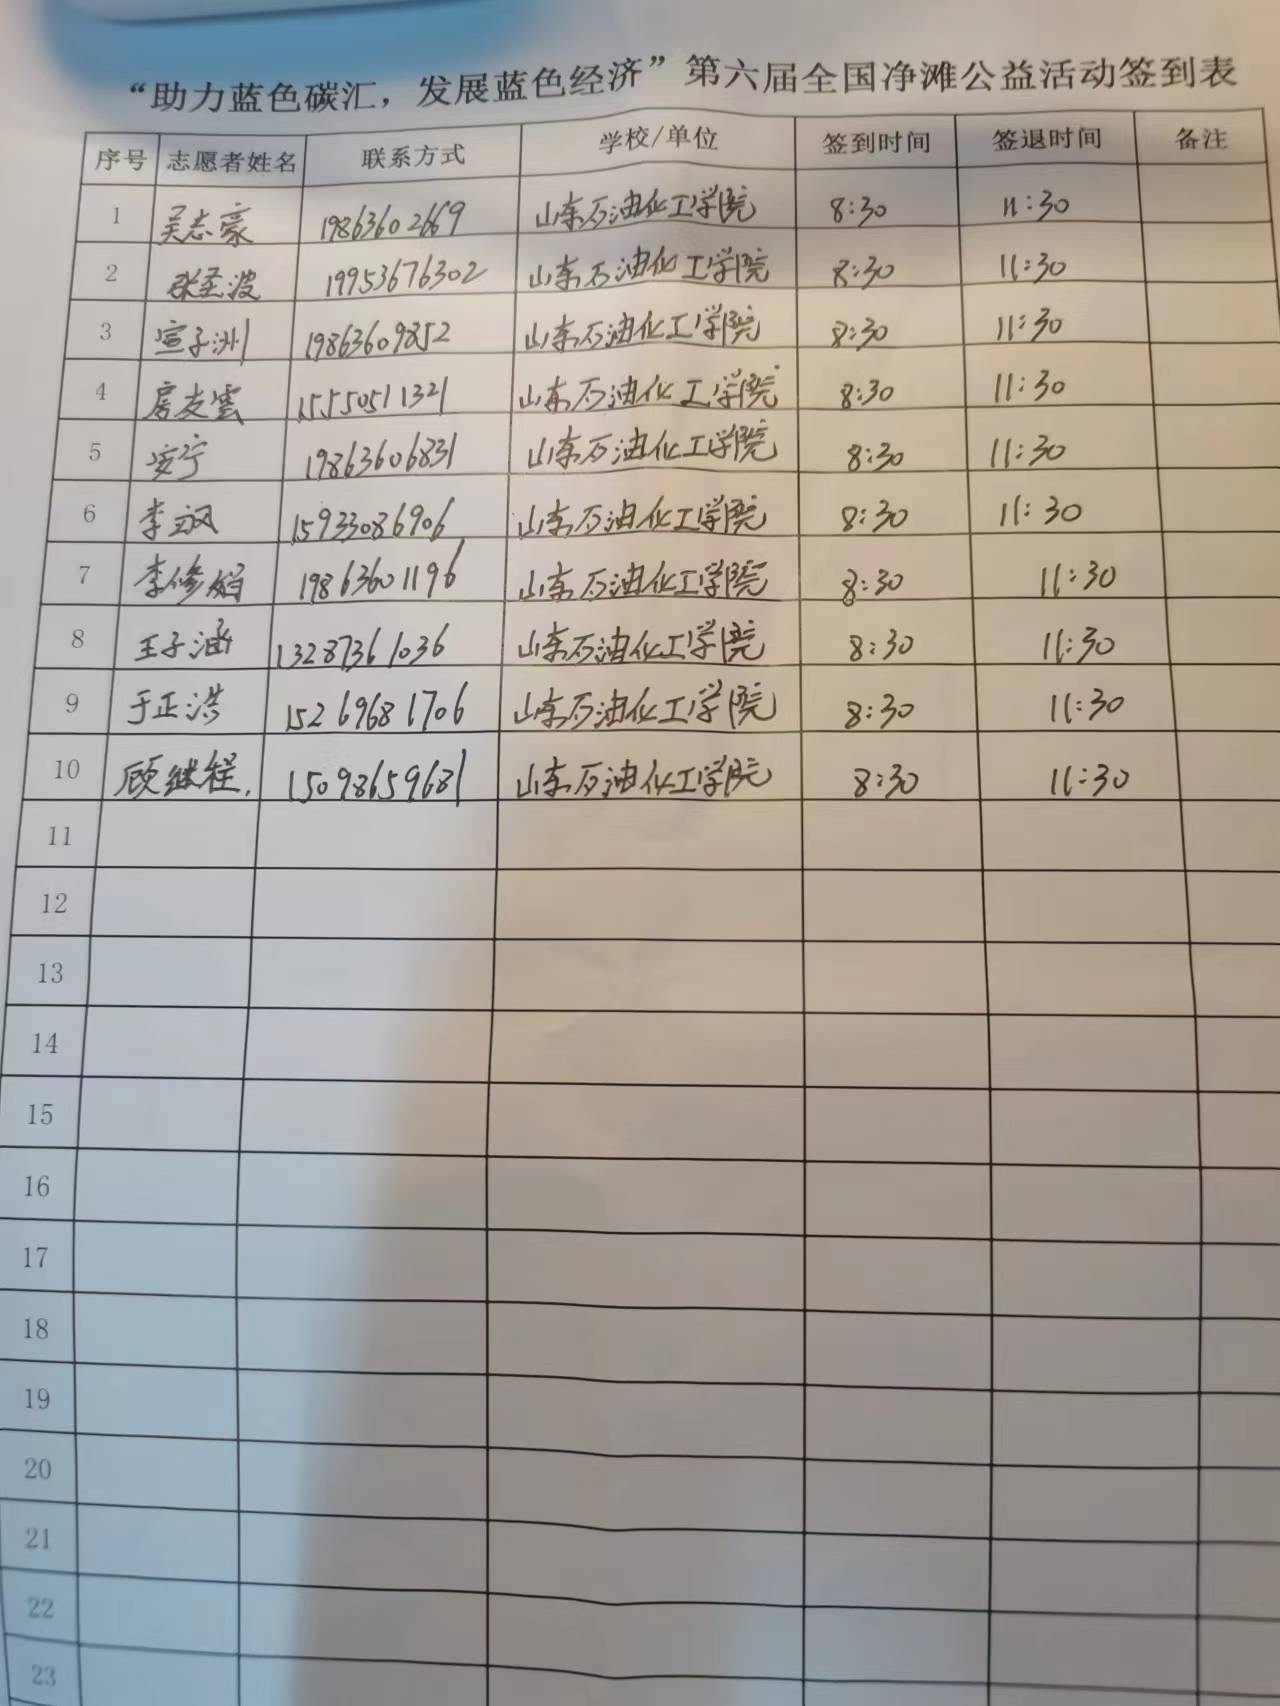 “助力蓝色碳汇，发展蓝色经济”第六届全国净滩公益活动签到表
序号 志愿者姓名 联系方式 学校/单位 签到时间 签退时间 备注
1 吴志豪 19863602669 山东石油化工学院 8:30 11:30
2 张圣波 19953676302 山东石油化工学院 8:30 11:30
3 宣子洲 19863609852 山东石油化工学院 8:30 11:30
4 房友云 15550511321 山东石油化工学院 8:30 11:30
5 安宁 19863606831 山东石油化工学院 8:30 11:30
6 李 15933086906 山东石油化工学院 8:30 11:30
7 李修娟 19863601196 山东石油化工学院 8:30 11:30
8 王子涵 13287361036 山东石油化工学院 8:30 11:30
9 于正洪 15269681706 山东石油化工学院 8:30 11:30
10 顾继程. 15098659681 山东石油化工学院 8:30 11:30
11
12
13
14
15
16
17
18
19
20
21
22
23